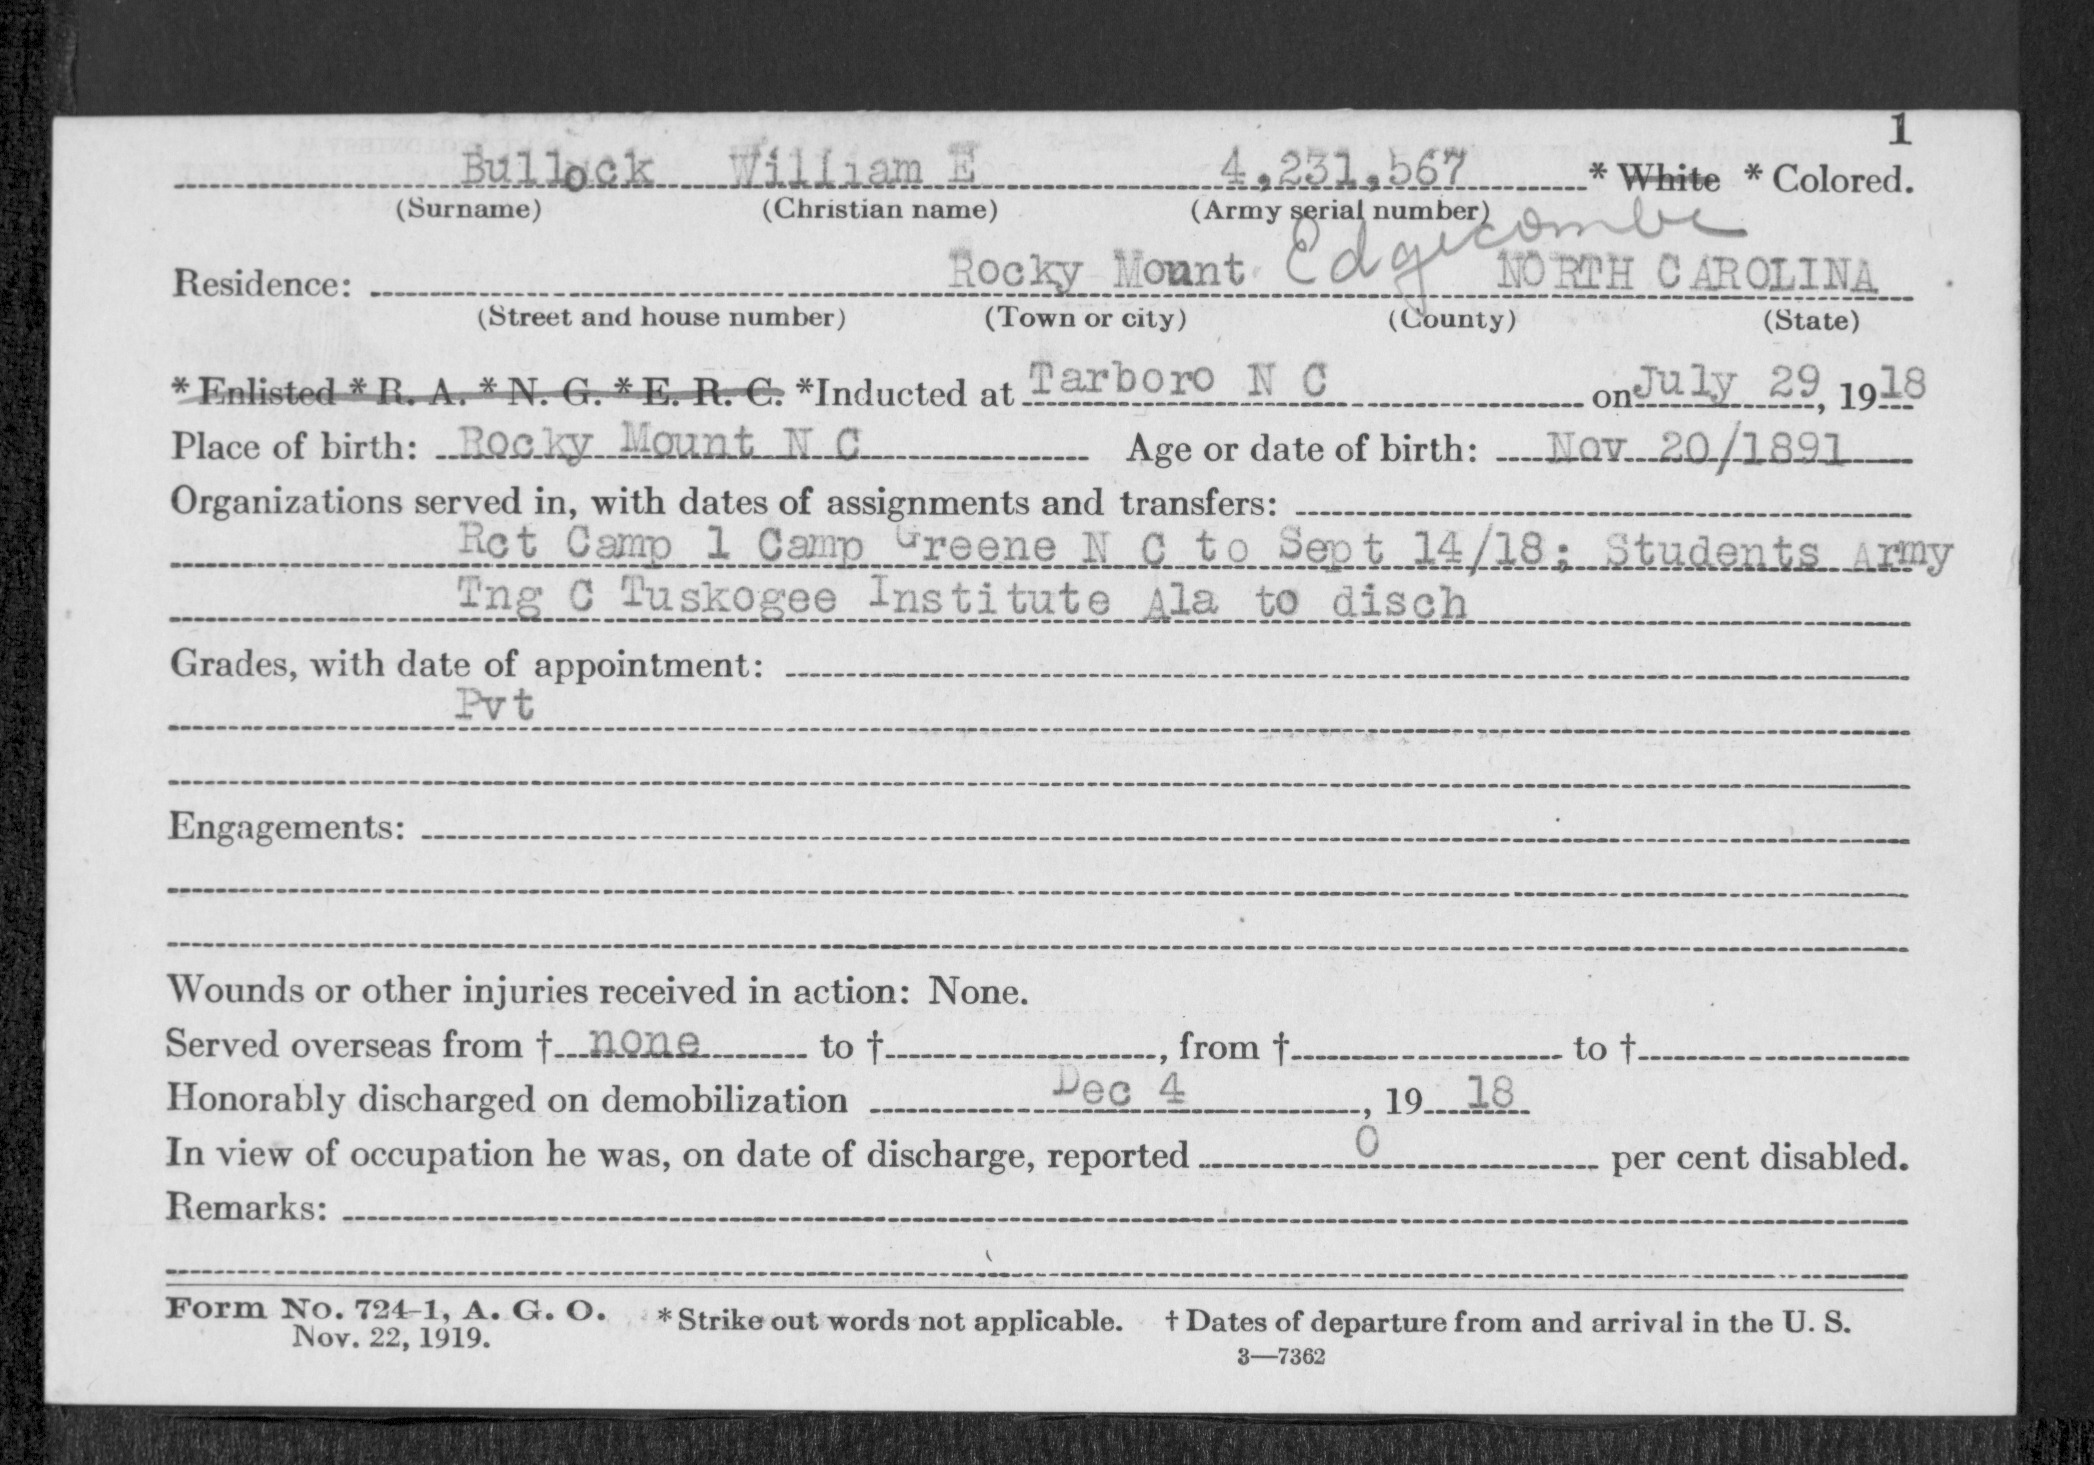 1
Bullock William E 4,231,567 * White * Colored.
(Surname) (Christian name) (Army serial number)
Residence: Rocky Mount Edgecombe NORTH CAROLINA
(Street and house number) (Town or city) (County) (State)
* Enlisted * R. A. * N. G. * E. R. C. *Inducted at Tarboro N C on July 29, 1918
Place of birth: Rocky Mount N C Age or date of birth: Nov 20/1891
Organizations served in, with dates of assignments and transfers:
Rct Camp 1 Camp Greene N C to Sept 14/18; Students Army
Tng C Tuskogee Institute Ala to disch
Grades, with date of appointment:
Pvt
Engagements:
Wounds or other injuries received in action: None.
Served overseas from † none to †, from † to †
Honorably discharged on demobilization Dec 4, 19 18
In view of occupation he was, on date of discharge, reported 0 per cent disabled.
Remarks:
Form No. 724-1, A. G. O. * Strike out words not applicable. † Dates of departure from and arrival in the U. S.
Nov. 22, 1919.
3—7362